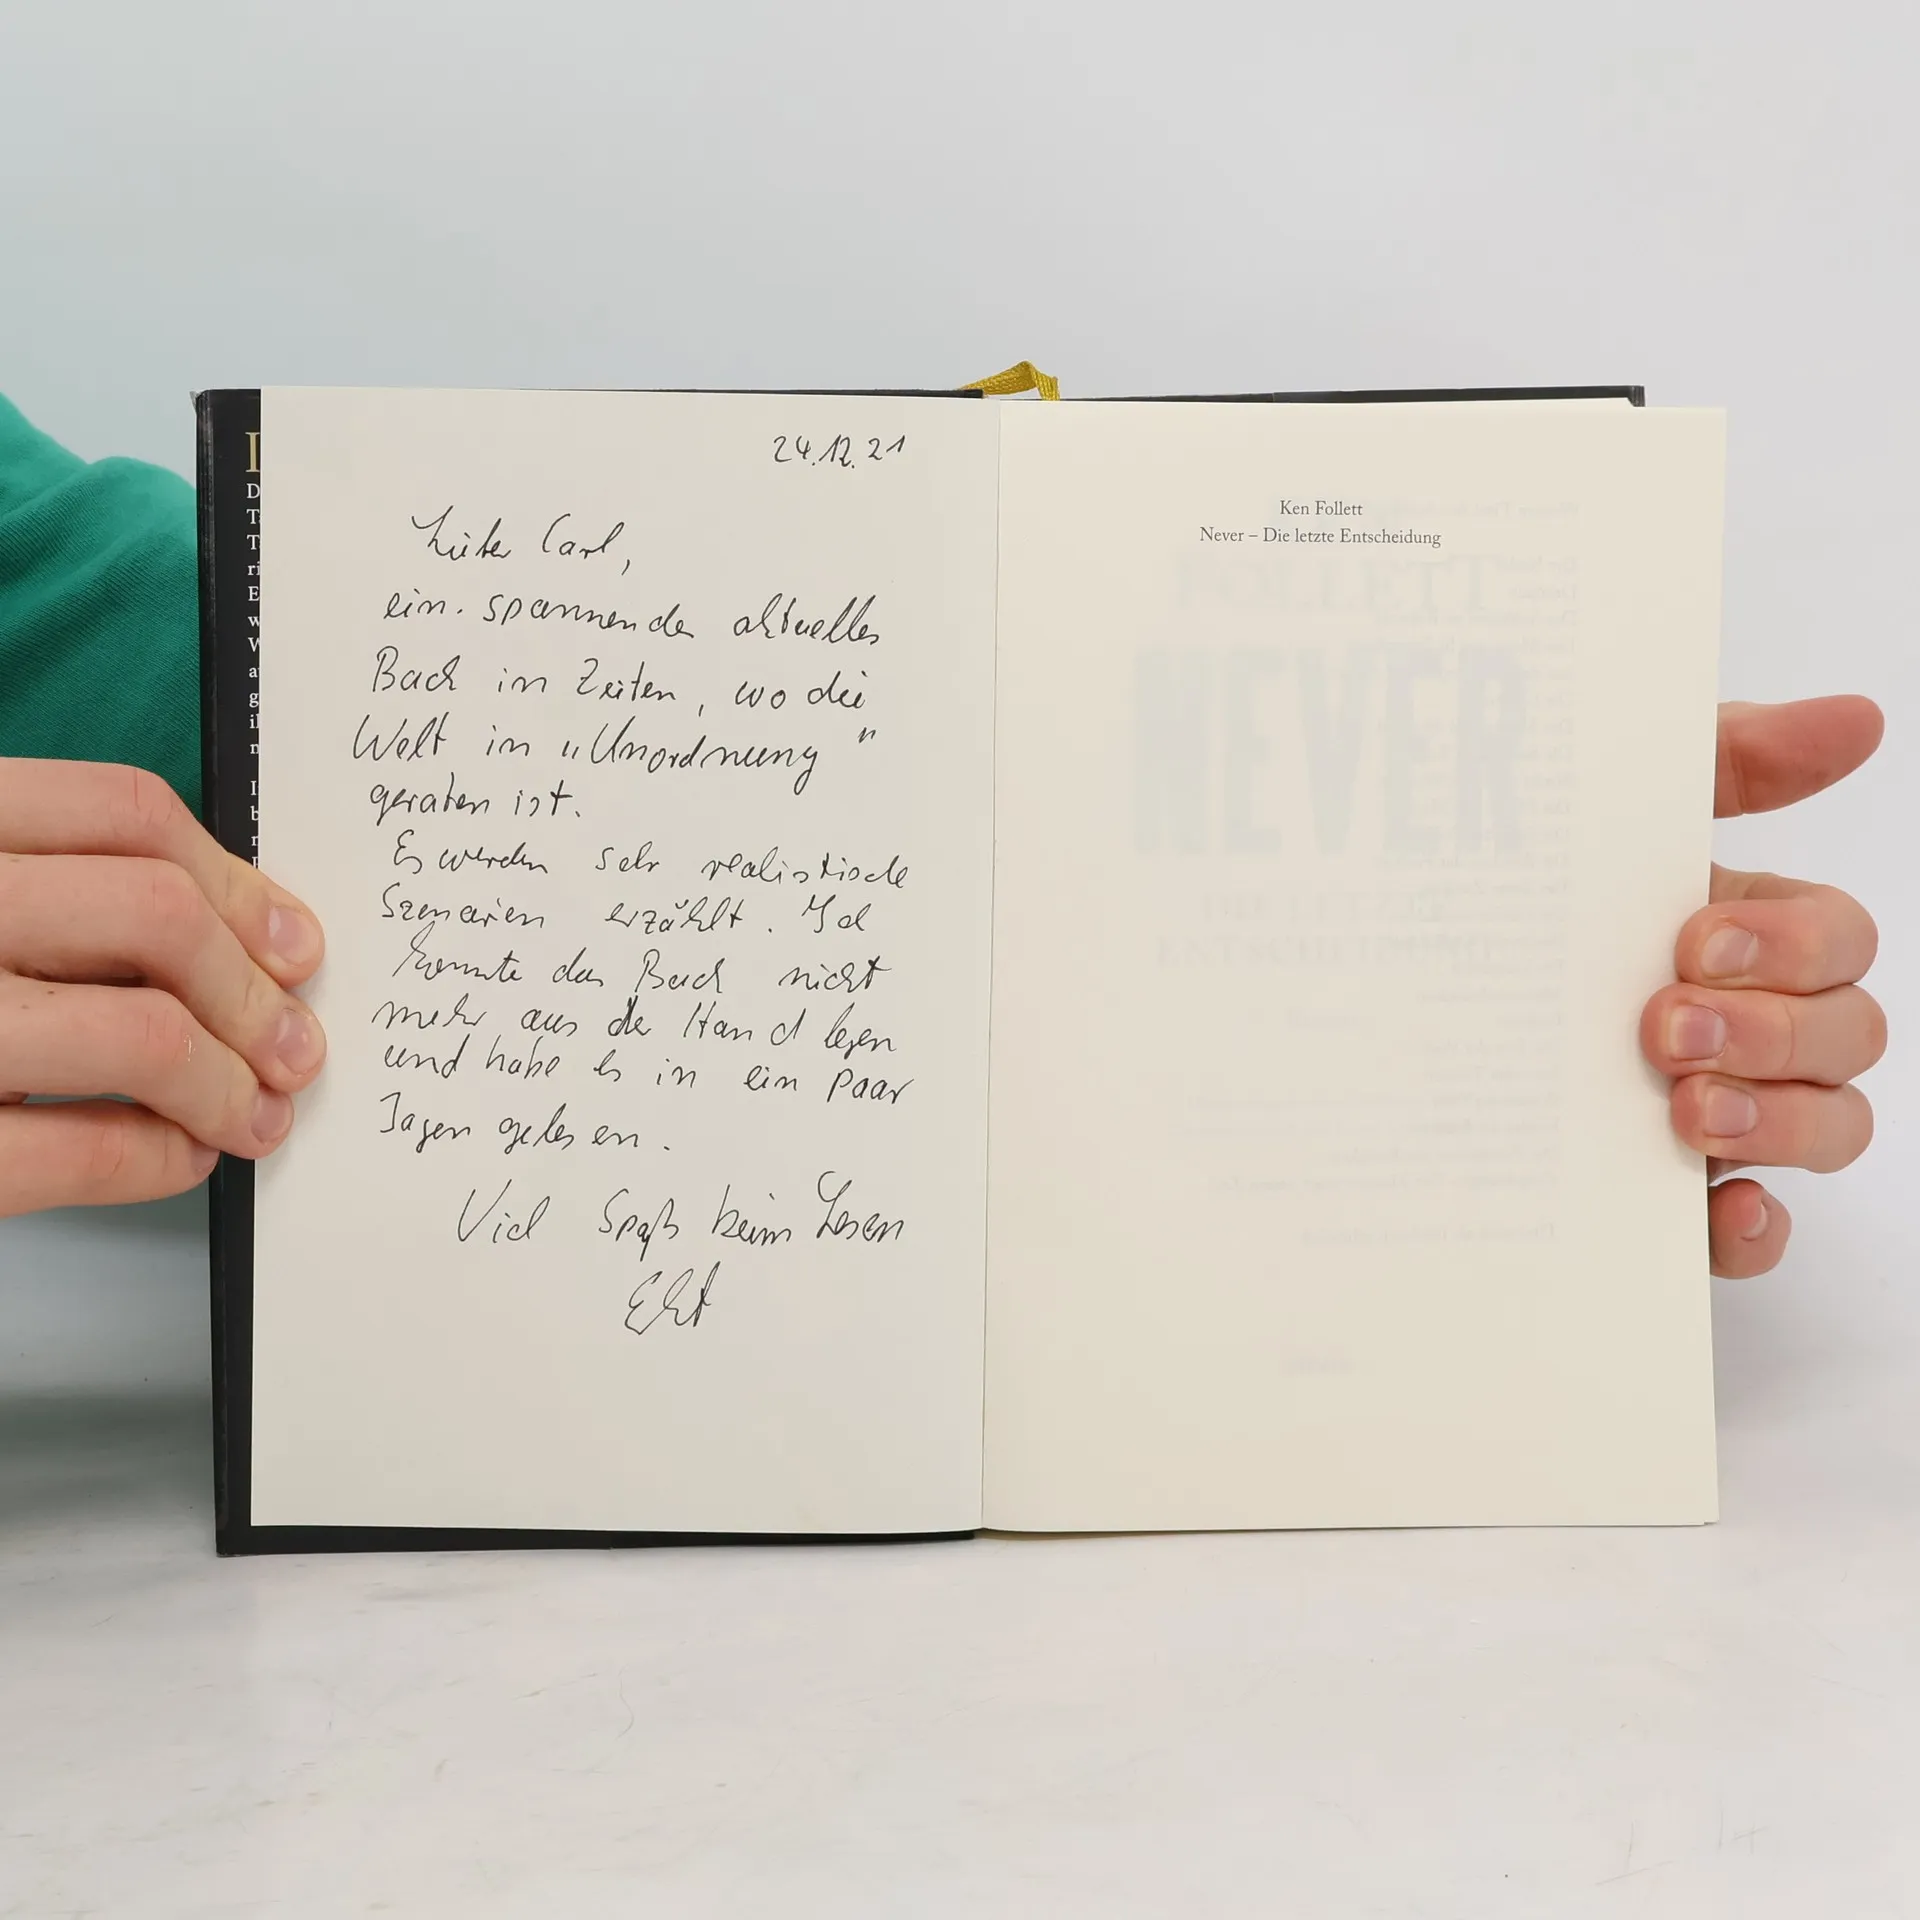 24.12.21
Lieber Carl,
ein spannendes aktuelles
Buch in Zeiten, wo die
Welt in „Unordnung"
geraten ist.
Es werden sehr realistische
Szenarien erzählt. Ich
konnte das Buch nicht
mehr aus der Hand legen
und habe es in ein paar
Tagen gelesen.
Viel Spaß beim Lesen
Ken Follett
Never – Die letzte Entscheidung